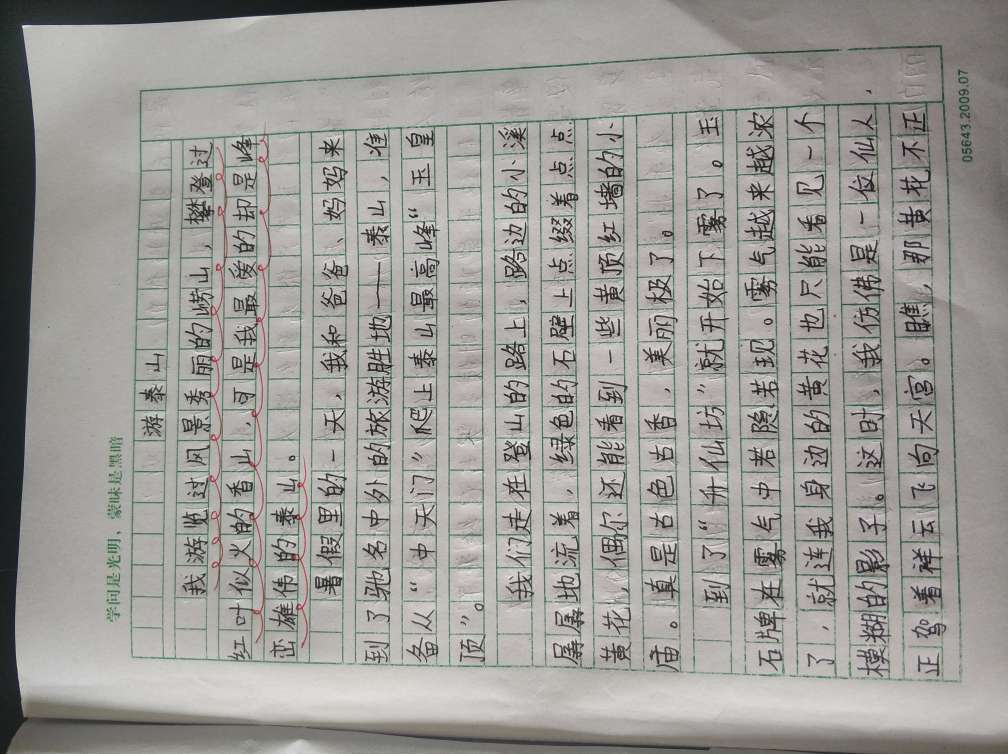 学问是光明，蒙昧是黑暗
游泰山
我游览过风景秀丽的崂山，攀登过
红叶似火的香山，可是我最爱的却是峰
峦雄伟的泰山。
暑假里的一天，我和爸爸、妈妈来
到了驰名中外的旅游胜地——泰山，准
备从“中天门”爬上泰山最高峰“玉皇
顶”。
我们走在登山的路上，路边的小溪
孱孱地流着，绿色的石壁上点缀着点点
黄花，偶尔还能看到一些黄顶红墙的小
庙。真是古色古香，美丽极了。
到了“升仙坊”就开始下雾了。玉
石牌在雾气中若隐若现。雾气越来越浓
了，就连我身边的黄花也只能看见一个
模糊的影子。这时，我仿佛是一位仙人，
正驾着祥云飞向天宫。瞧，那黄花不正
05643.2009.07